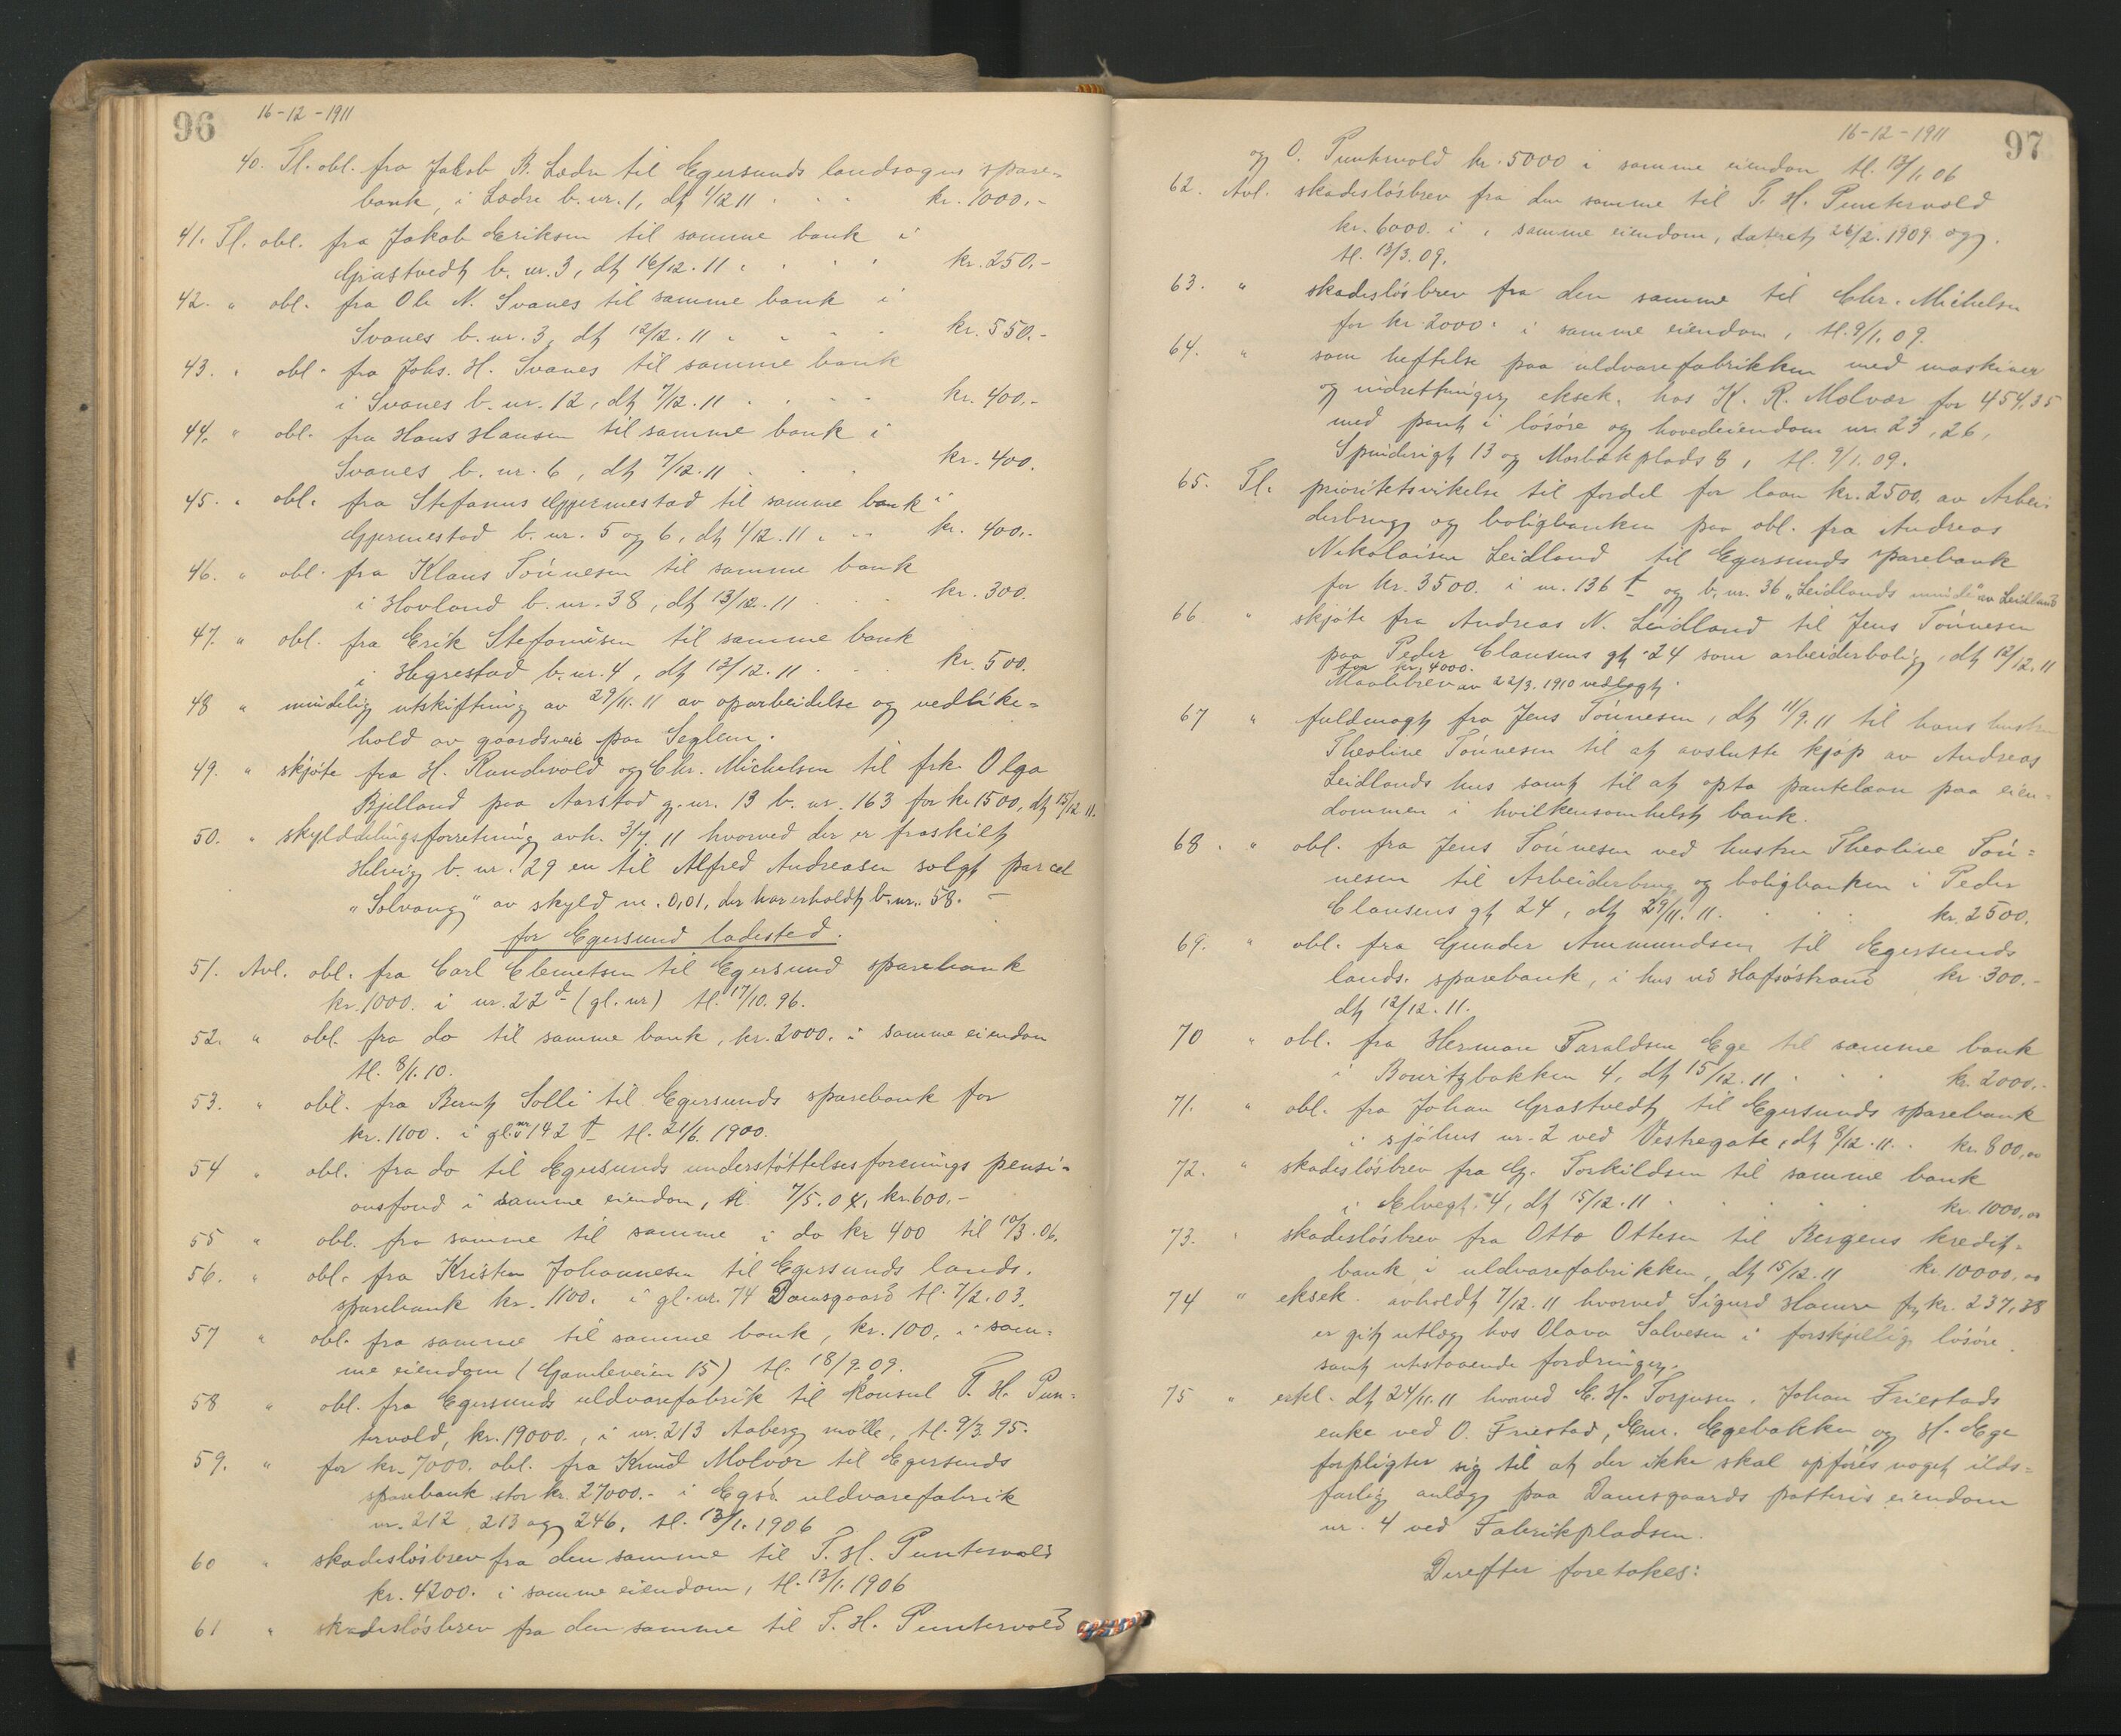 96 16-12-1911
40. Tl. obl. fra Jakob B. Lædre til Egersunds landsogns spare-
bank, i Lædre b. nr. 1, dt 1/12 11 . . . kr. 1000.-
41. Tl. obl. fra Jakob Eriksen til samme bank i
Grastvedt b. nr. 3, dt 16/12.11 . . . kr. 250.-
42. " obl. fra Ole N. Svanes til samme bank i
Svanes b. nr. 3, dt 12/12.11 . . . kr. 550.-
43. " obl. fra Johs. H. Svanes til samme bank
i Svanes b. nr. 12, dt 7/12.11 . . . kr. 400.-
44. " obl. fra Hans Hansen til samme bank i
Svanes b. nr. 6, dt 7/12.11 . . . kr. 400.
45. " obl. fra Stefanus Gjermestad til samme bank i
Gjermestad b. nr. 5 og 6, dt 1/12.11 . . . kr. 400.-
46. " obl. fra Klaus Tönnesen til samme bank
i Hovland b. nr. 38, dt 13/12.11 . . . kr. 300.
47. " obl. fra Erik Stefanisen til samme bank
i Hegrestad b. nr. 4, dt 12/12.11 . . . kr. 500.
48 " mindelig utskiftning av 29/11.11 av oparbeidelse og vedlike-
hold av gaardsveie paa Seglem.
49. " skjöte fra H. Rundevold og Chr. Michelsen til frk. Olga
Bjelland paa Aarstad g. nr. 13 b. nr. 163 for kr 1500, dt 15/12 11.
50. " skylddelingsforretning avh. 3/7. 11 hvorved der er fraskilt
Helvig b. nr. 29 en til Alfred Andreasen solgt parcel
"Solvang" av skyld m. 0,01, der har erholdt b. nr. 58. -
for Egersund ladested.
51. Avl. obl. fra Carl Clemetsen til Egersund sparebank
kr. 1000. i nr. 22 d (gl. nr) tl. 17/10. 96.
52. " obl. fra do til samme bank, kr. 2000. i samme eiendom
tl. 8/1. 10.
53. " obl. fra Bernt Solli til Egersunds sparebank for
kr. 1100. i gl. nr 142 t tl. 21/6. 1900.
54 " obl. fra do til Egersunds understöttelsesforenings pensi-
onsfond i samme eiendom, tl. 7/5. 04, kr. 600.-
55 " obl. fra samme til samme i do kr 400 til 10/3. 06.
56. " obl. fra Kristen Johannesen til Egersunds lands.
sparebank kr. 1100. i gl. nr. 74 Damsgaard tl. 7/2. 03.
57 " obl. fra samme til samme bank, kr. 100, i sam-
me eiendom (Gamleveien 15) tl. 18/9. 09.
58 " obl. fra Egersunds uldvarefabrik til konsul T. H. Pun-
tervold, kr. 19000., i nr. 213 Aaberg mölle, tl. 9/3. 95.
59. " for kr. 7000. obl. fra Knud Molvær til Egersunds
sparebank stor kr. 27000.- i Egrs. uldvarefabrik
nr. 212, 213 og 246. tl. 13/1. 1906
60 " skadeslösbrev fra den samme til T. H. Puntervold
kr. 4200. i samme eiendom, tl. 13/1. 1906
61 " skadeslösbrev fra den samme til T. H. Puntervold
16-12-1911 97
og O. Puntervold kr. 5000 i samme eiendom tl. 13/1. 06
62. Avl. skadeslösbrev fra den samme til T. H. Puntervold
kr. 6000. i samme eiendom, dateret 26/2. 1909 og
tl. 13/3. 09.
63. " skadeslösbrev fra den samme til Chr. Michelsen
for kr. 2000. i samme eiendom, tl. 9/1. 09.
64. " som heftelse paa uldvarefabrikken med maskiner
og indretninger eksek. hos K. R. Molvær for 454,35
med pant i lösöre og hovedeiendom nr. 23, 26,
Spinderigt 13 og Mosbækplads 8, tl. 9/1. 09.
65. Tl. prioritetsvikelse til fordel for laan kr. 2500. av Arbei-
derbrug og boligbanken paa obl. fra Andreas
Nikolaisen Leidland til Egersunds sparebank
for kr. 3500. i nr. 136 t og b. nr. 36 "Leidlands minde" av Leidland
66. " skjöte fra Andreas N. Leidland til Jens Tönnesen
paa Peder Clausens gt. 24 som arbeiderbolig, dt 12/12. 11
for kr. 4000.
Maalebrev av 22/3. 1910 vedlagt.
67 " fuldmagt fra Jens Tönnesen, dt 11/9. 11 til hans hustru
Theoline Tönnesen til at avslutte kjöp av Andreas
Leidlands hus samt til at opta pantelaan paa eien-
dommen i hvilkensomhelst bank.
68. " obl. fra Jens Tönnesen ved hustru Theoline Tön-
nesen til Arbeiderbrug og boligbanken i Peder
Clausens gt 24, dt 29/11. 11. . . . kr. 2500.
69. " obl. fra Gunder Ammundsen til Egersunds
lands. sparebank, i hus vd Hafsöstrand kr. 300.-
dt 12/12. 11.
70 " obl. fra Herman Taraldsen Ege til samme bank
i Bouritzbakken 4, dt 15/12. 11 . . . kr. 2000.-
71. " obl. fra Johan Grastvedt til Egersunds sparebank
i sjöhus nr. 2 ved Vestregate, dt 8/12. 11. . kr. 800,00
72. " skadeslösbrev fra G. Torkildsen til samme bank
i Elvegt. 4, dt 15/12. 11 . . . kr. 1000,00
73. " skadeslösbrev fra Otto Ottesen til Bergens kredit-
bank i uldvarefabrikken, dt 15/12. 11 kr. 10000,00
74 " eksek. avholdt 7/12. 11 hvorved Sigurd Hamre for kr. 237,38
er git utlæg hos Olava Salvesen i forskjellig lösöre
samt utestaaende fordringer.
75 " erkl. dt 24/11. 11 hvorved E. H. Torjusen, Johan Friestads
enke ved O. Friestad, Enr. Egebakken og H. Ege
forpligter sig til at der ikke skal opföres noget ilds-
farlig anlæg paa Damsgaards potteris eiendom
nr. 4 ved Fabrikpladsen.
Derefter foretokes: